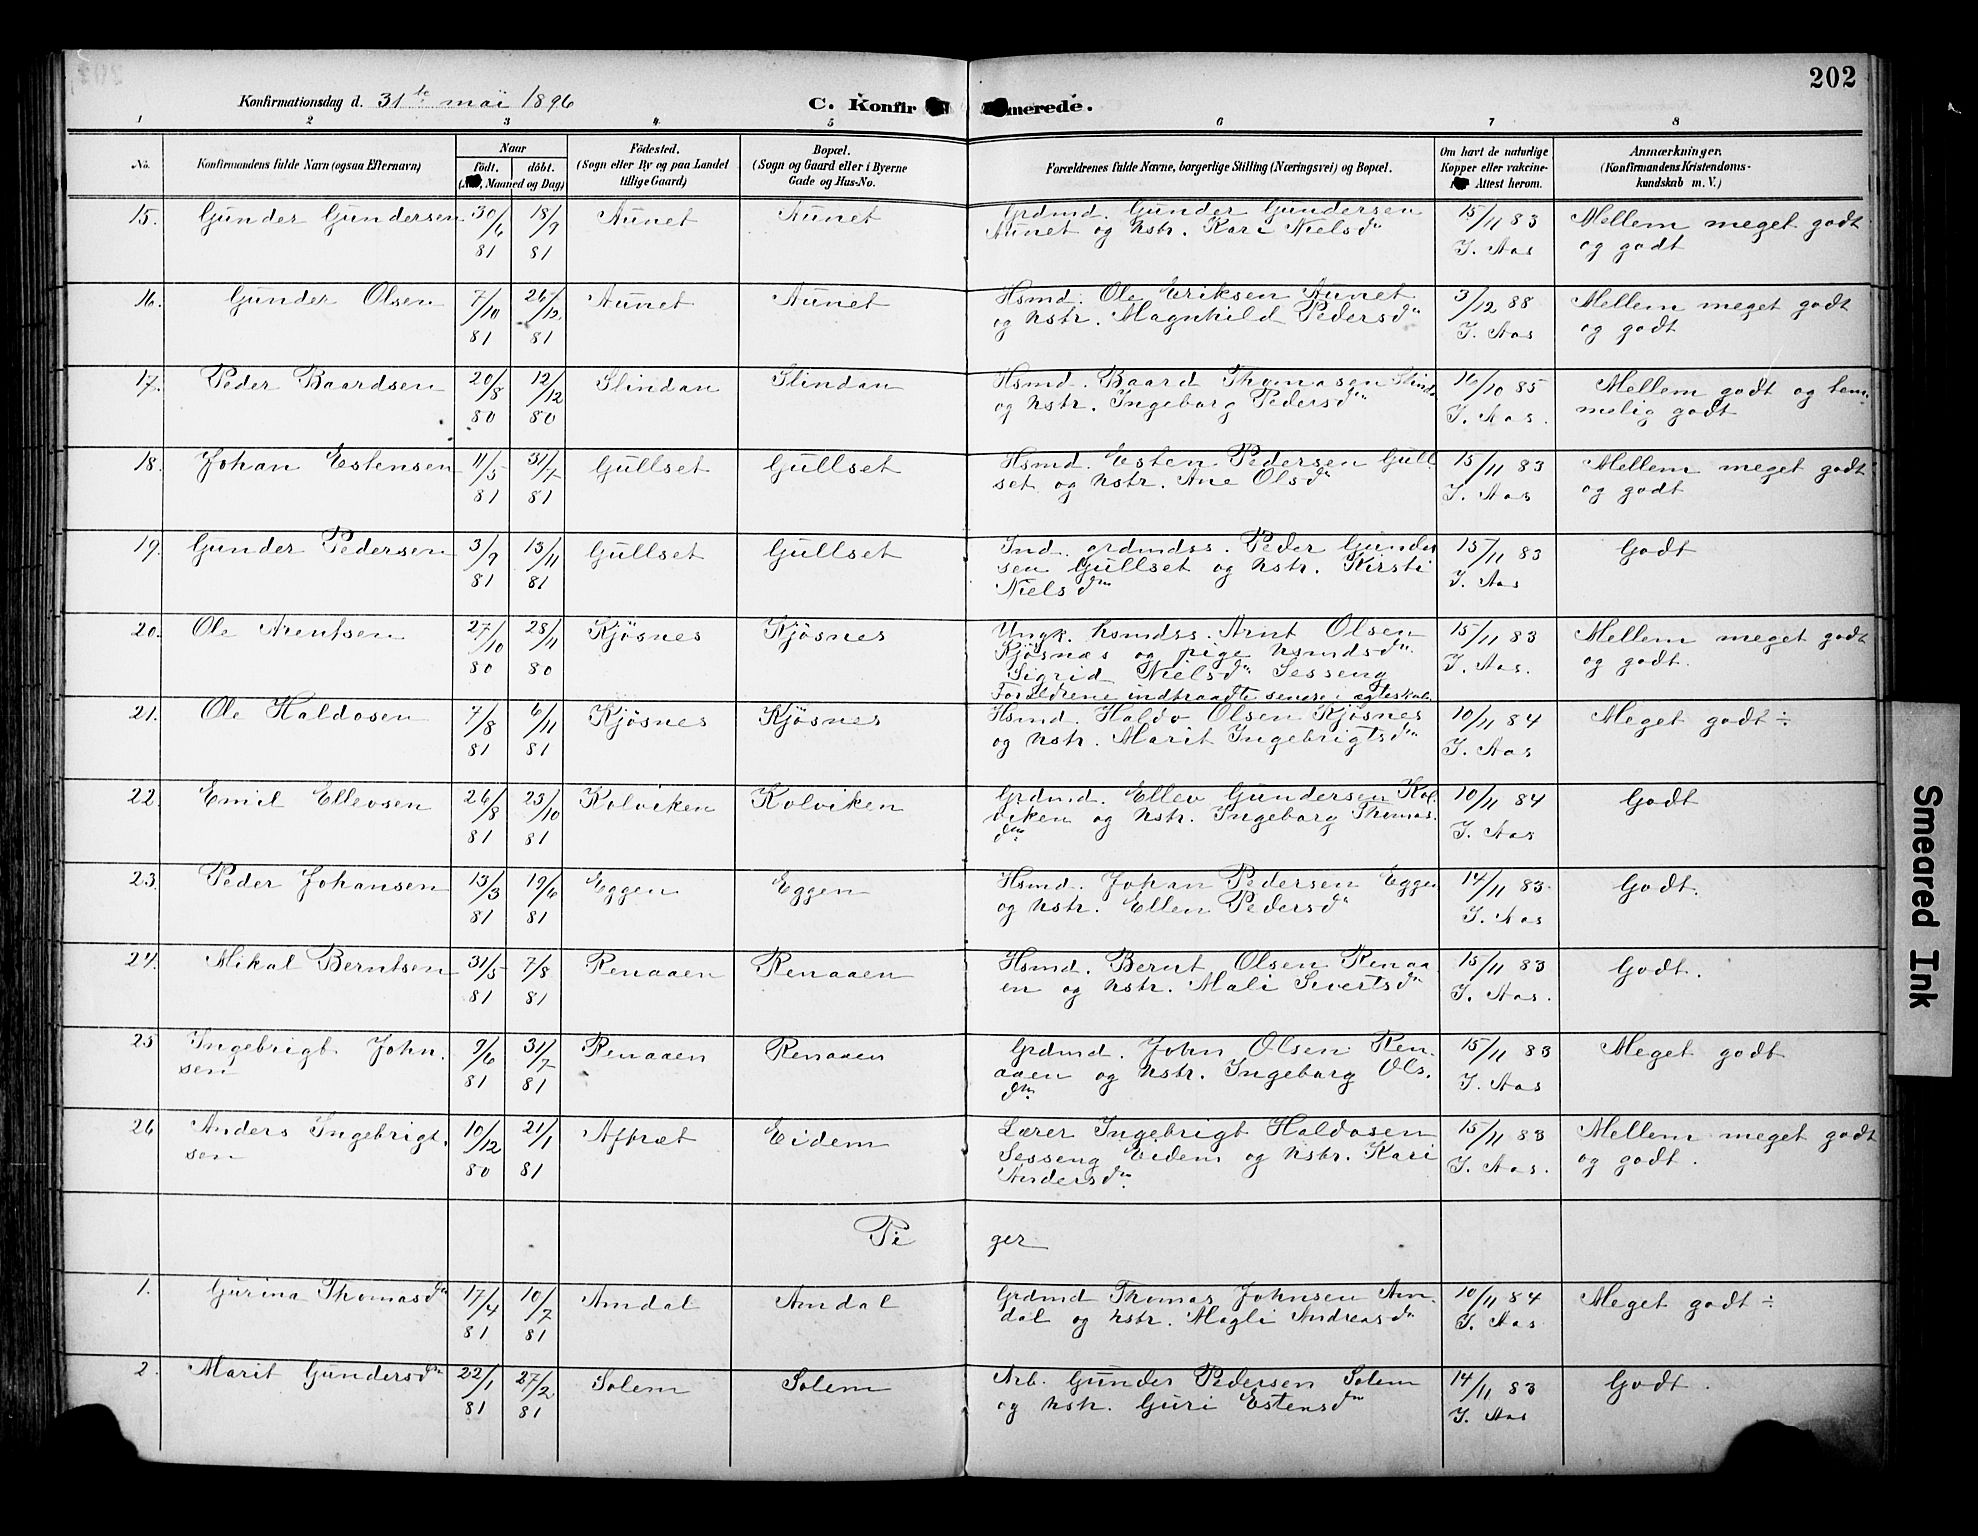 202
Konfirmationsdag d. 31te mai 1896 C. Konfirmerede.
1 2 3 4 5 6 7 8
No. Konfirmandens fulde Navn (ogsaa Efternavn) Naar født. døbt. (Aar, Maaned og Dag) Fødested. (Sogn eller By og paa Landet tillige Gaard) Bopæl. (Sogn og Gaard eller i Byerne Gade og Hus-No. Forældrenes fulde Navne, borgerlige Stilling (Næringsvei) og Bopæl. Om havt de naturlige Kopper eller vakcineret Attest herom. Anmærkninger. (Konfirmandens Kristendomskundskab m. V.)
15. Gunder Gundersen 30/6 81 18/9 81 Aunet Aunet Grdmd. Gunder Gundersen
Aunet og hstr. Kari Nielsdn 15/11 83 I. Aas Mellem meget godt
og godt
16. Gunder Olsen 7/10 81 26/12 81 Aunet Aunet Hsmd. Ole Eriksen Aunet
og hstr. Magnhild Pedersdn 3/12 88 I. Aas Mellem meget godt
og godt
17. Peder Baardsen 20/8 80 12/12 80 Slindan Slindan Hsmd. Baard Thomasen Slinda
og hstr. Ingeborg Pedersdn 16/10 85 I. Aas. Mellem godt og tem-
melig godt
18. Johan Estensen 11/5 81 31/7 81 Gullset Gullset Hsmd. Esten Pedersen Gull
set og hstr. Ane Olsdn 15/11 83 I. Aas Mellem meget godt
og godt
19. Gunder Pedersen 3/9 81 13/11 81 Gullset Gullset Ind. grdmdss. Peder Gunder
sen Gullset og hstr. Kirsti
Nielsdn 15/11 83 I. Aas Godt
20. Ole Arentsen 27/10 80 28/11 80 Kjøsnes Kjøsnes Ungk. hsmdss. Arnt Olsen
Kjøsnæs og pige hsmdsdn.
Sigrid Nielsdn Sesseng
Forældrene indtraadte senere i ægteskab. 15/11 83 I. Aas. Mellem meget godt
og godt.
21. Ole Haldosen 7/8 81 6/11 81 Kjøsnes Kjøsnes Hsmd. Haldo Olsen Kjøsnes
og hstr. Marit Ingebrigtsdn 10/11 84 I. Aas Meget godt ÷
22. Emil Ellevsen 26/8 81 23/10 81 Kolviken Kolviken Grdmd. Ellev Gundersen Kol-
viken og hstr. Ingeborg Thomas-
dn. 10/11 84 I. Aas Godt
23. Peder Johansen 13/3 81 19/6 81 Eggen Eggen Hsmd. Johan Pedersen Eggen
og hstr. Ellen Pedersdn 14/11 83. I. Aas Godt.
24. Mikal Berntsen 31/5 81 7/8 81 Renaaen Renaaen Hsmd. Bernt Olsen Renaa
en og hstr. Mali Sivertsdn 15/11 83 I. Aas. Godt.
25 Ingebrigt John-
sen 9/6 81 31/7 81 Renaaen Renaaen Grdmd. John Olsen Ren-
aaen og hstr. Ingeborg Ols-
dn. 15/11 83 I. Aas Meget godt
26 Anders Ingebrigt-
sen 10/12 80 21/1 81 Aftræt Eidem Lærer Ingebrigt Haldosen
Sesseng Eidem og hstr. Kari
Andersdn. 15/11 83 I. Aas. Mellem meget godt
og godt.
Pi ger
1. Gurina Thomasdn 17/4 81 10/7 81 Amdal Amdal Grdmd Thomas Johnsen Am-
dal og hstr. Magli Andreasdn 10/11 84 I. Aas Meget godt ÷
2. Marit Gundersdn 22/1 81 27/2 81 Solem Solem Arb. Gunder Pedersen Solem
og hstr. Guri Estensdn 14/11 83 I. Aas Godt.
Smeared Ink